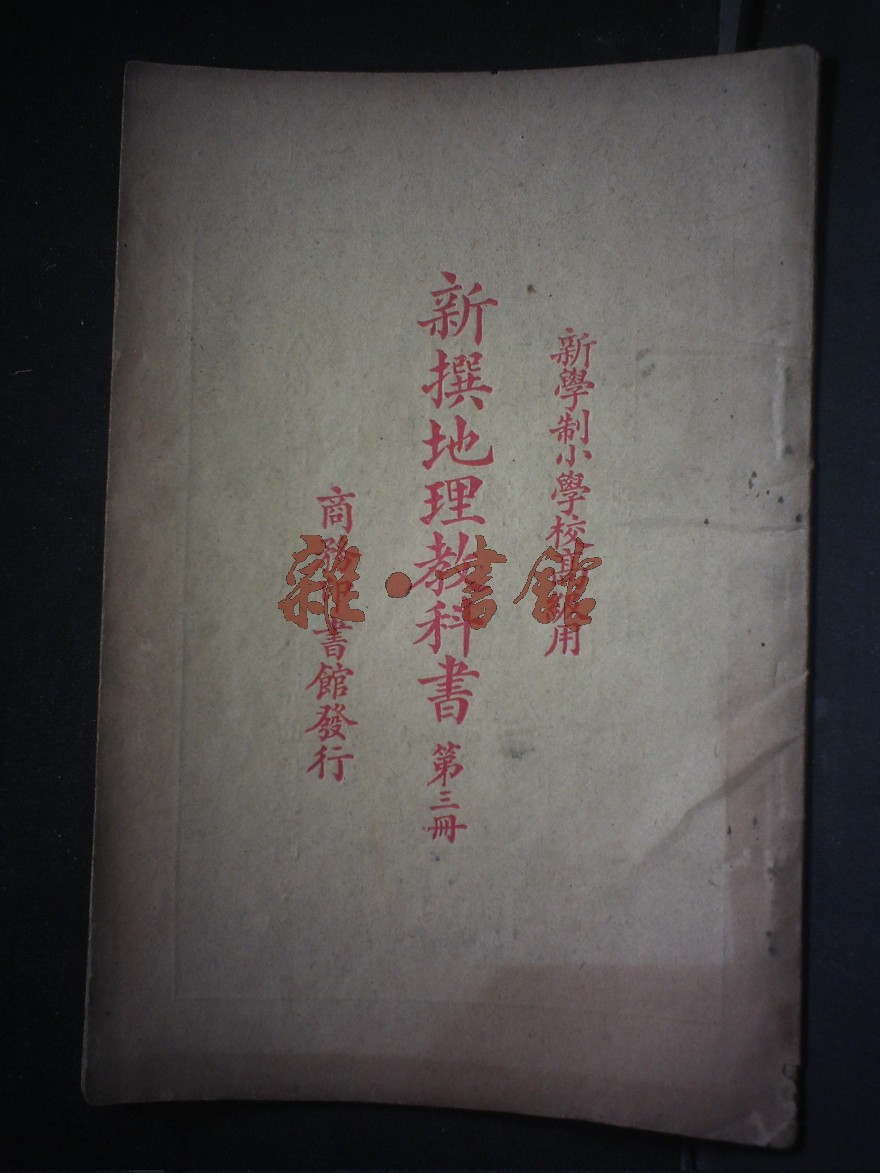 新學制小學校高級用
新撰地理教科書 第三冊
商務印書館發行
雜·書館